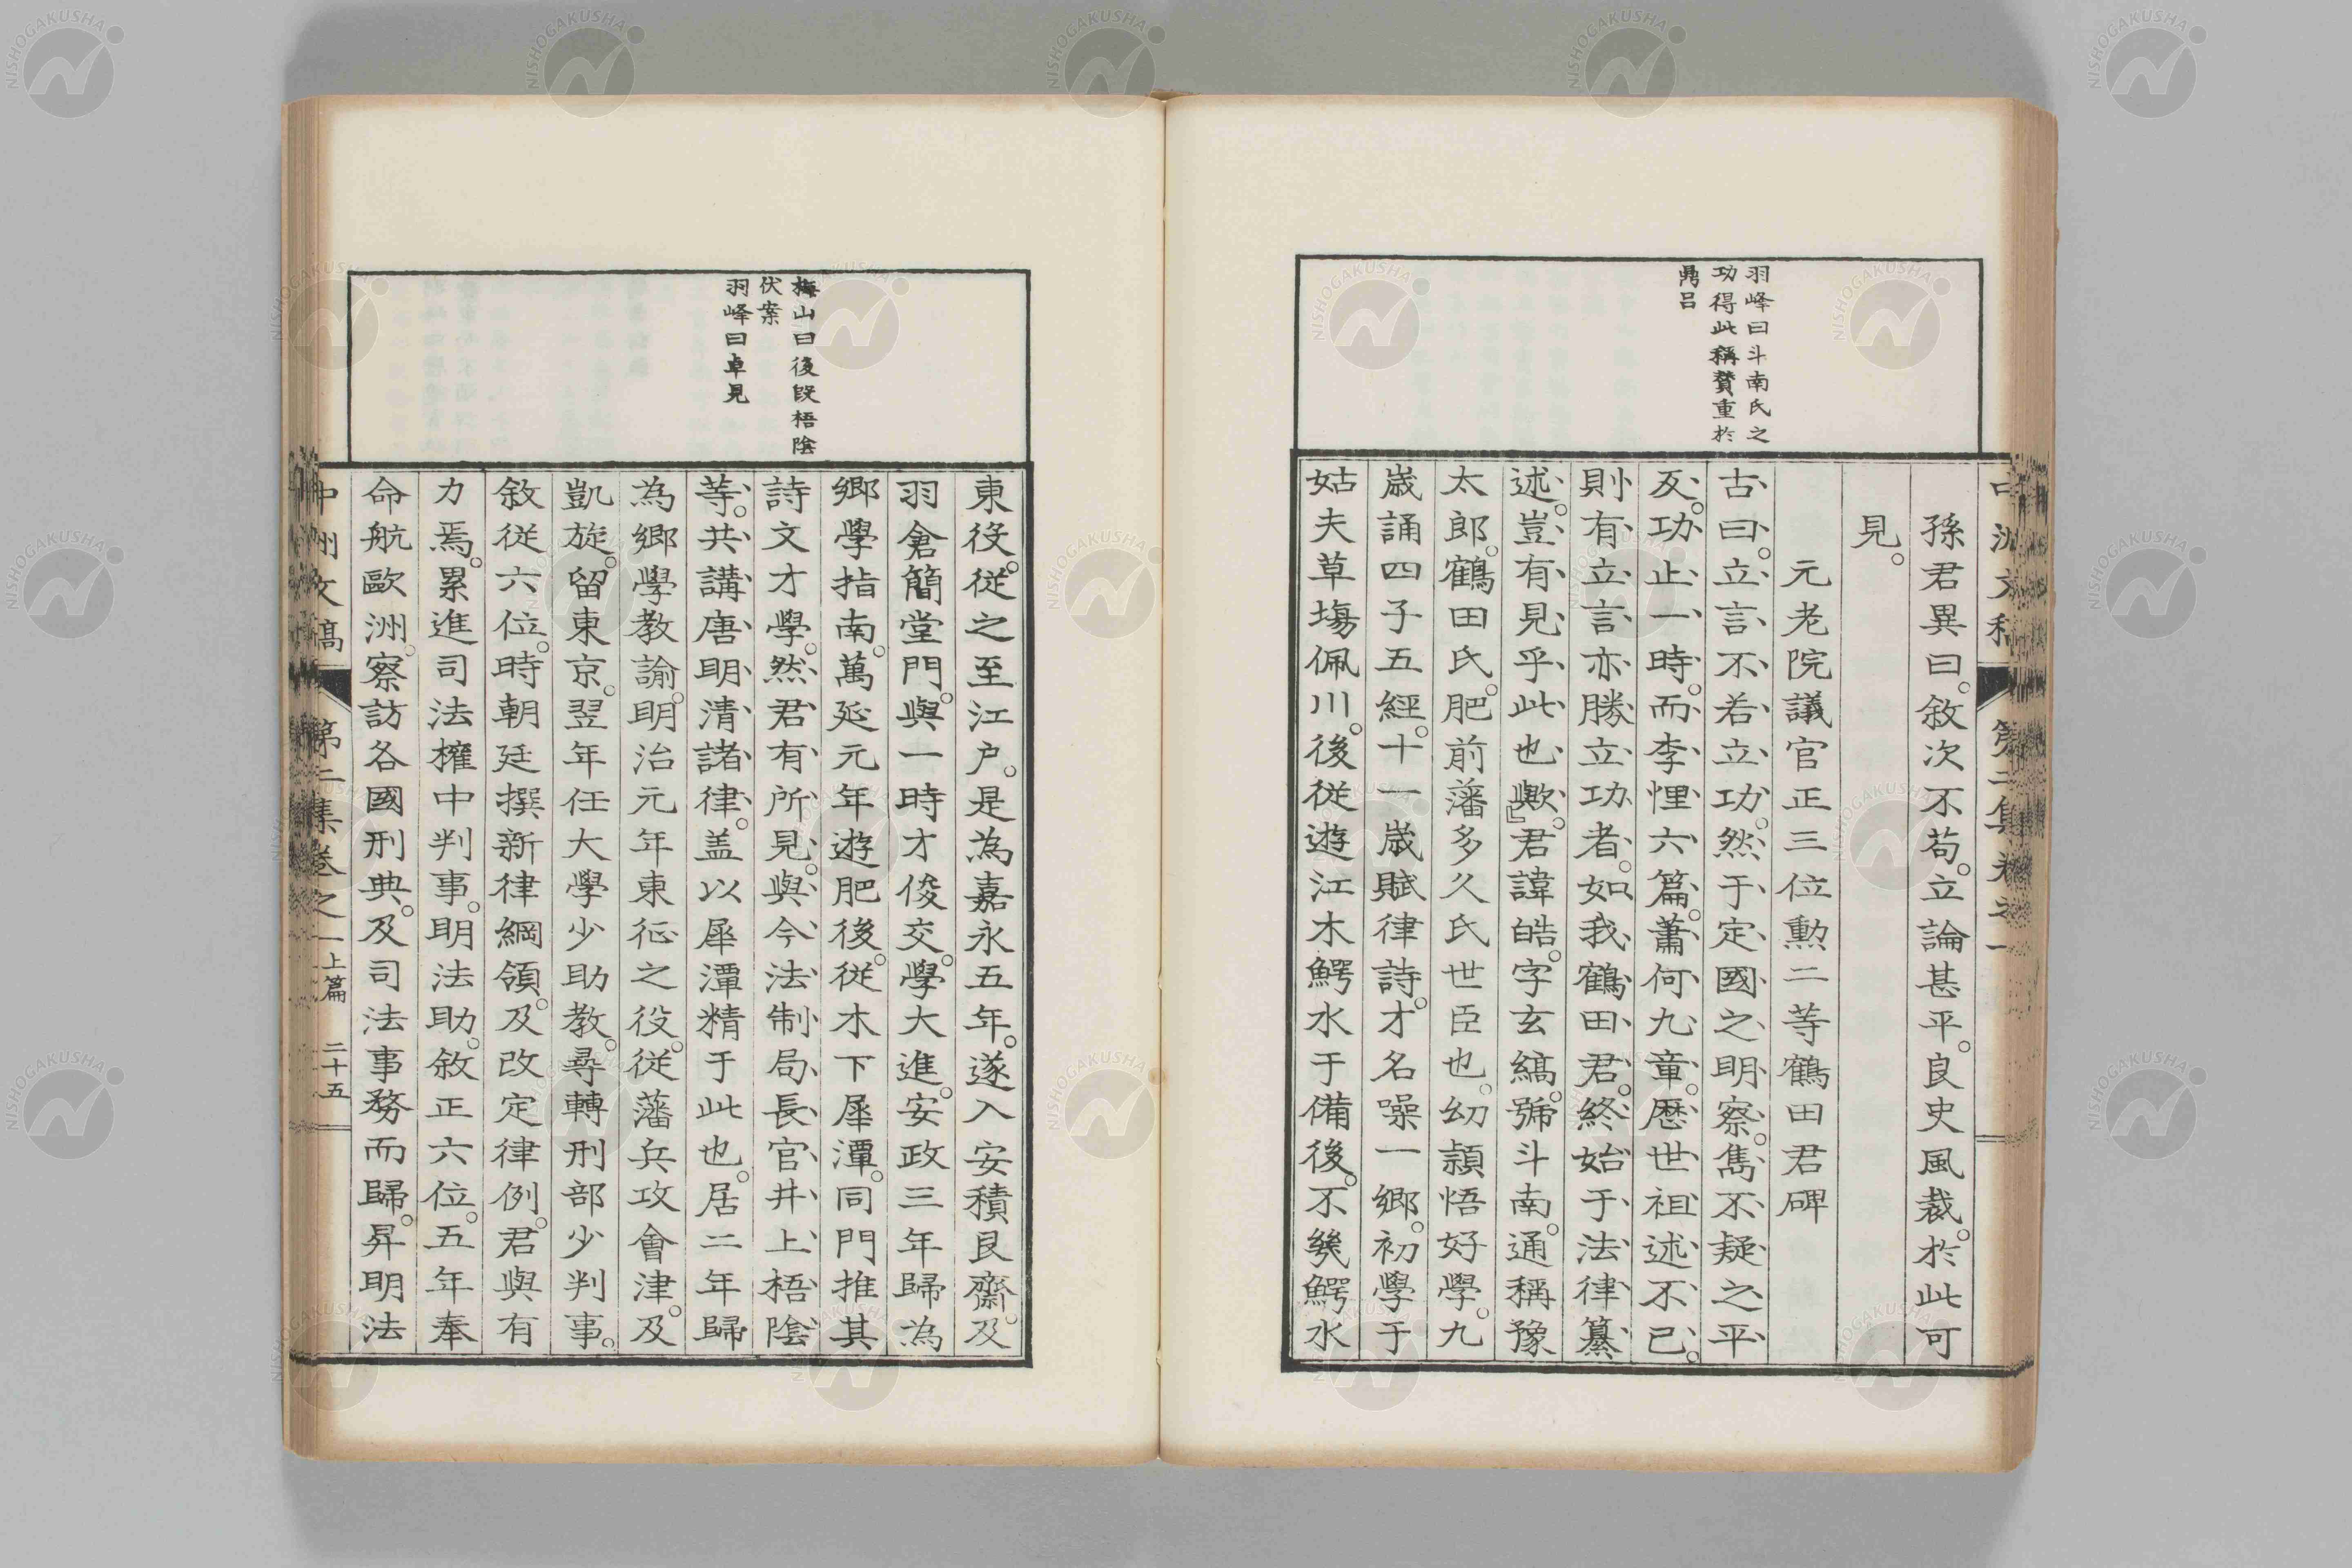 羽峰曰斗南氏之
功得此稱贊重於
鼎呂
孫君異曰。敘次不苟。立論甚平。良史風裁。於此可
見。
元老院議官正三位勳二等鶴田君碑
古曰。立言不若立功。然于定國之明察。雋不疑之平
反。功止一時。而李悝六篇。蕭何九章。歷世祖述不已。
則有立言亦勝立功者。如我鶴田君。終始于法律纂
述。豈有見乎此也歟。』君諱皓。字玄縞。號斗南。通稱豫
太郎。鶴田氏。肥前藩多久氏世臣也。幼頴悟好學。九
歲誦四子五經。十一歲賦律詩。才名噪一鄉。初學于
姑夫草場佩川。後從遊江木鰐水于備後。不幾鰐水
梅山曰後段梧陰
伏案
羽峰曰卓見
東役。從之至江戶。是為嘉永五年。遂入安積艮齋。及
羽倉簡堂門。與一時才俊交。學大進。安政三年歸為
鄉學指南。萬延元年遊肥後。從木下犀潭。同門推其
詩文才學。然君有所見。與今法制局長官井上梧陰
等。共講唐明清諸律。盖以犀潭精于此也。居二年歸
為鄉學教諭。明治元年東征之役。從藩兵攻會津。及
凱旋。留東京。翌年任大學少助教。尋轉刑部少判事。
敘從六位。時朝廷撰新律綱領。及改定律例。君與有
力焉。累進司法權中判事。明法助。敘正六位。五年奉
命航歐洲。察訪各國刑典。及司法事務而歸。昇明法
中洲文稿 第二集卷之一上篇 二十五